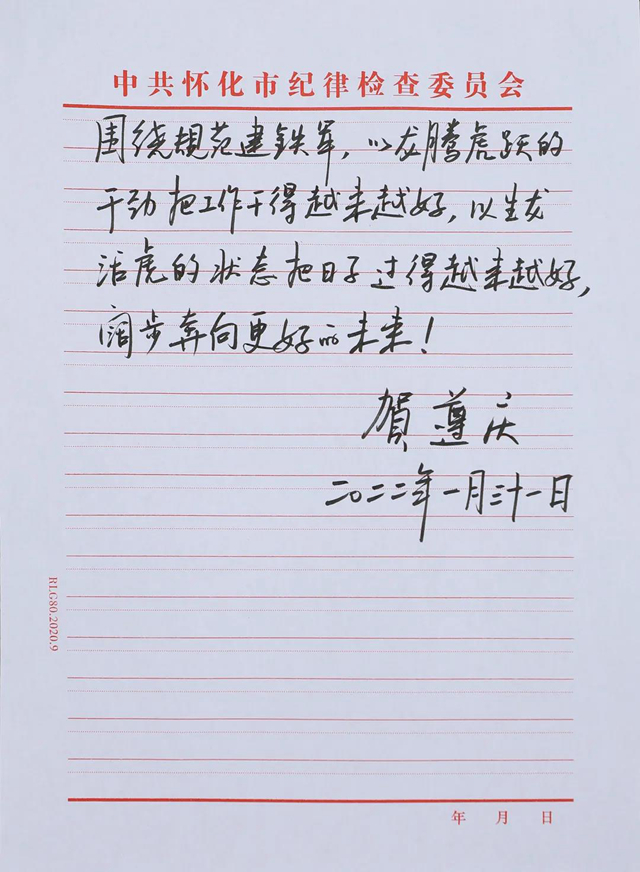 中共怀化市纪律检查委员会
围绕规范建铁军，以龙腾虎跃的
干劲把工作干得越来越好，以生龙
活虎的状态把日子过得越来越好，
阔步奔向更好的未来！
贺遵庆
二〇二二年一月三十一日
RLG80.2020.9
年 月 日